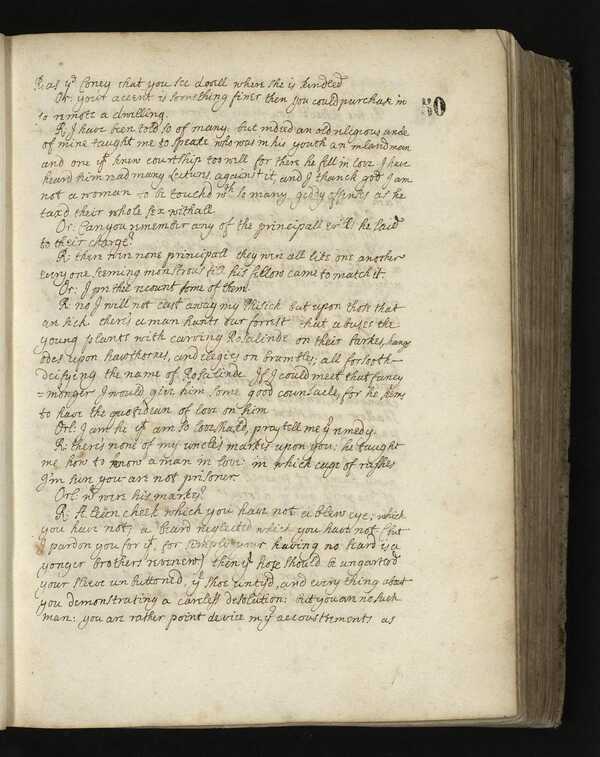 R. as yᵉ Coney that you see dwell where she is kindled
Or: your accent is something finer then you could purchase in
so remote a dwelling.
R. I have been told so of many. but indeed an old religious uncle
of mine taught me to speake who was in his youth an inlandman
and one yᵗ knew courtship too well for there he fell in love I have
heard him read many Lectures against it, and I thanck god I am
not a woman to be touch'd wᵗʰ so many giddy offences as he
taxd their whole sex withall
Or. Can you remember any of the principall evills he laid
to their charge?
R. there were none principall they were all like one another
every one seeming monstrous till his fellow came to match it.
Or: I prethe recount some of them.
R: no I will not cast away my Phisick but upon those that
are sick. there's a man hunts our forrest that abuses the
young plants with carving Rosalinde on their barkes, hangs
odes upon hawthornes, and elegies on brambles; all forsooth
deifying the name of Rosalinde. If I could meet that fancy
=monger I would give him some good counsaile, for he seems
to have the quotidean of love on him
Orl: I am he yᵗ am so loveshak'd, pray tell me yʳ remedy.
R: there's none of my uncle's markes upon you: he taught
me how to know a man in love: in which cage of rushes
I'm sure you are not prisoner
Orl: wᵗ were his markes?
R. A leane cheek which you have not a blew eye; which
you have not; a beard neglected which you have not (but
I pardon you for yᵗ, for simply your having no beard is a
yonger brothers revenew) then yʳ hose should be ungartred
your sleeve unbuttoned, yʳ shoe untyd, and every thing about
you demonstrating a careless desolation: but you are no such
man: you are rather point device in yʳ accoustrements as
50